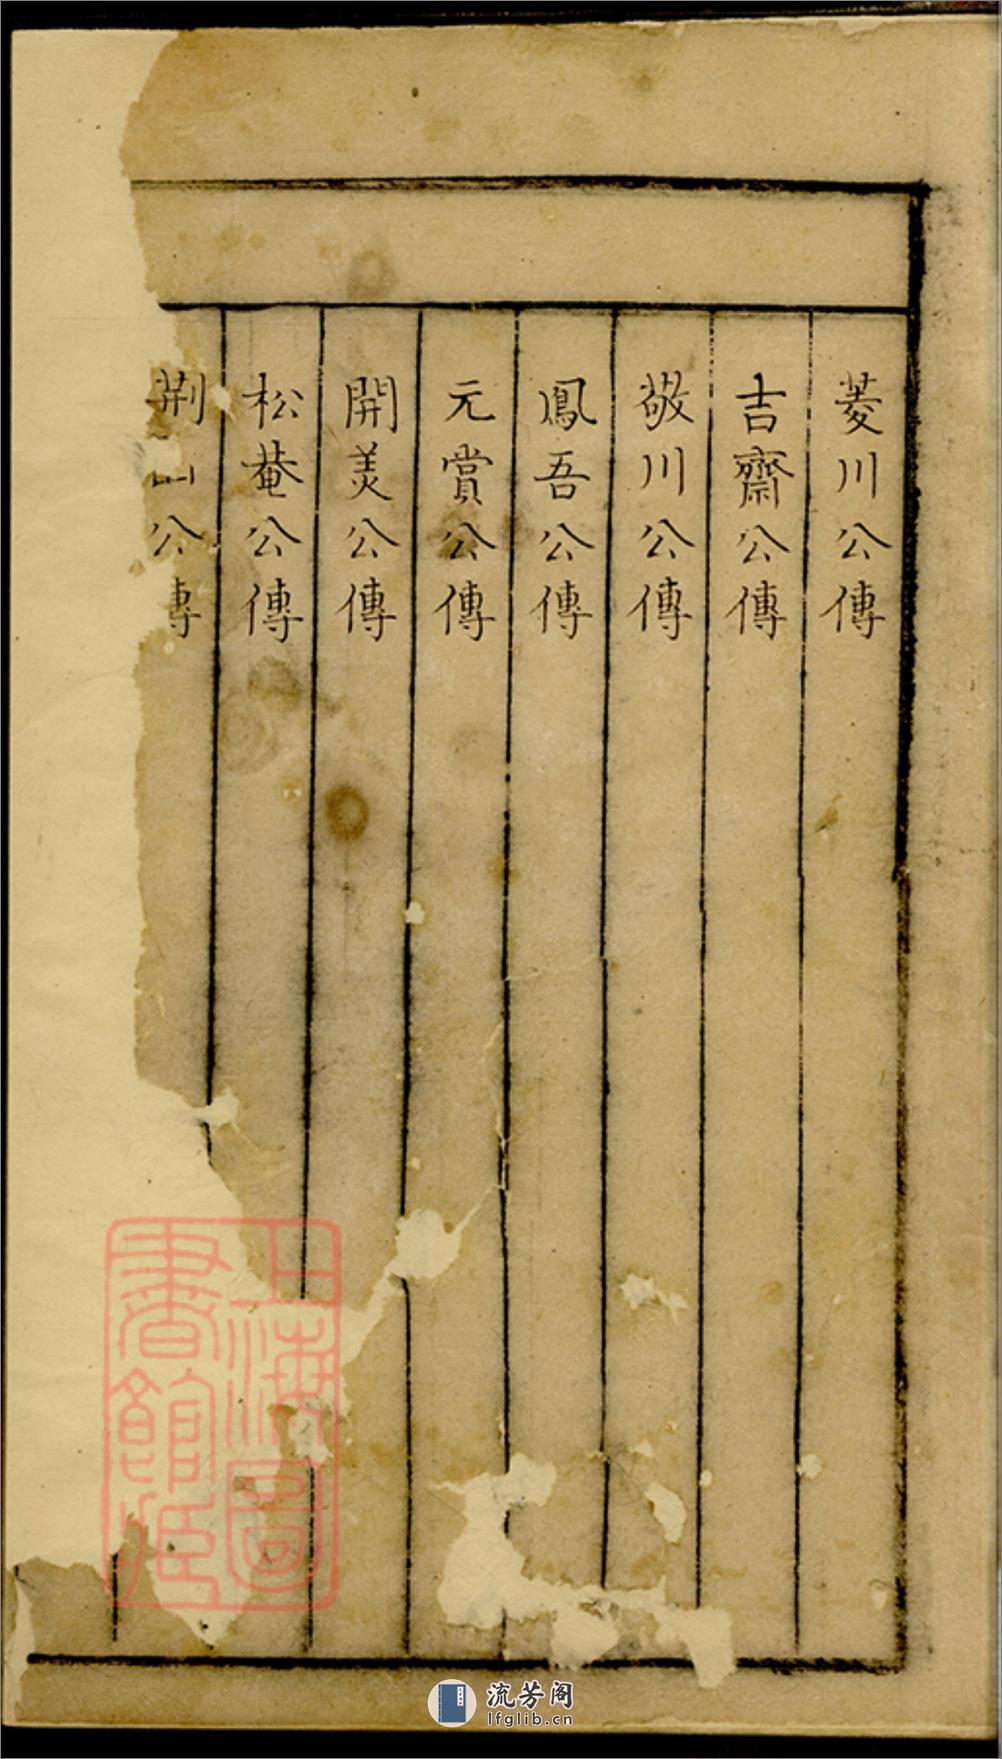 菱川公傳
吉齋公傳
敬川公傳
鳳吾公傳
元賞公傳
開美公傳
松菴公傳
荆山公傳
上海圖
書館藏
流芳阁
lfglib.cn